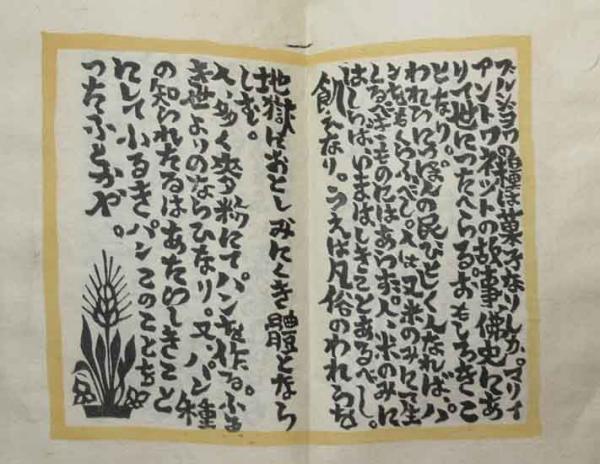 ブルジヨワの種は菓子なりしか。マリイ
アントワネットの故事佛史にあ
りて世につたへらる。おもしろきこ
となり。
われひにつぽんの民ひとしくんなれば、パ
ンをもくらふべし。人は又米のみにて生
くるものにはあらず。人、米のみに
はしらば、いまはしきことあるべし。
飢えなり。うえは凡俗のわれらを
地獄におとしみにくき體となら
しむ。
人、多く麥粉にてパンを作る。ふる
き世よりのならひなり。又、パン種
の知られたるはあたらしきこと
にしてふるきパンこのことをも
つたふとかや。